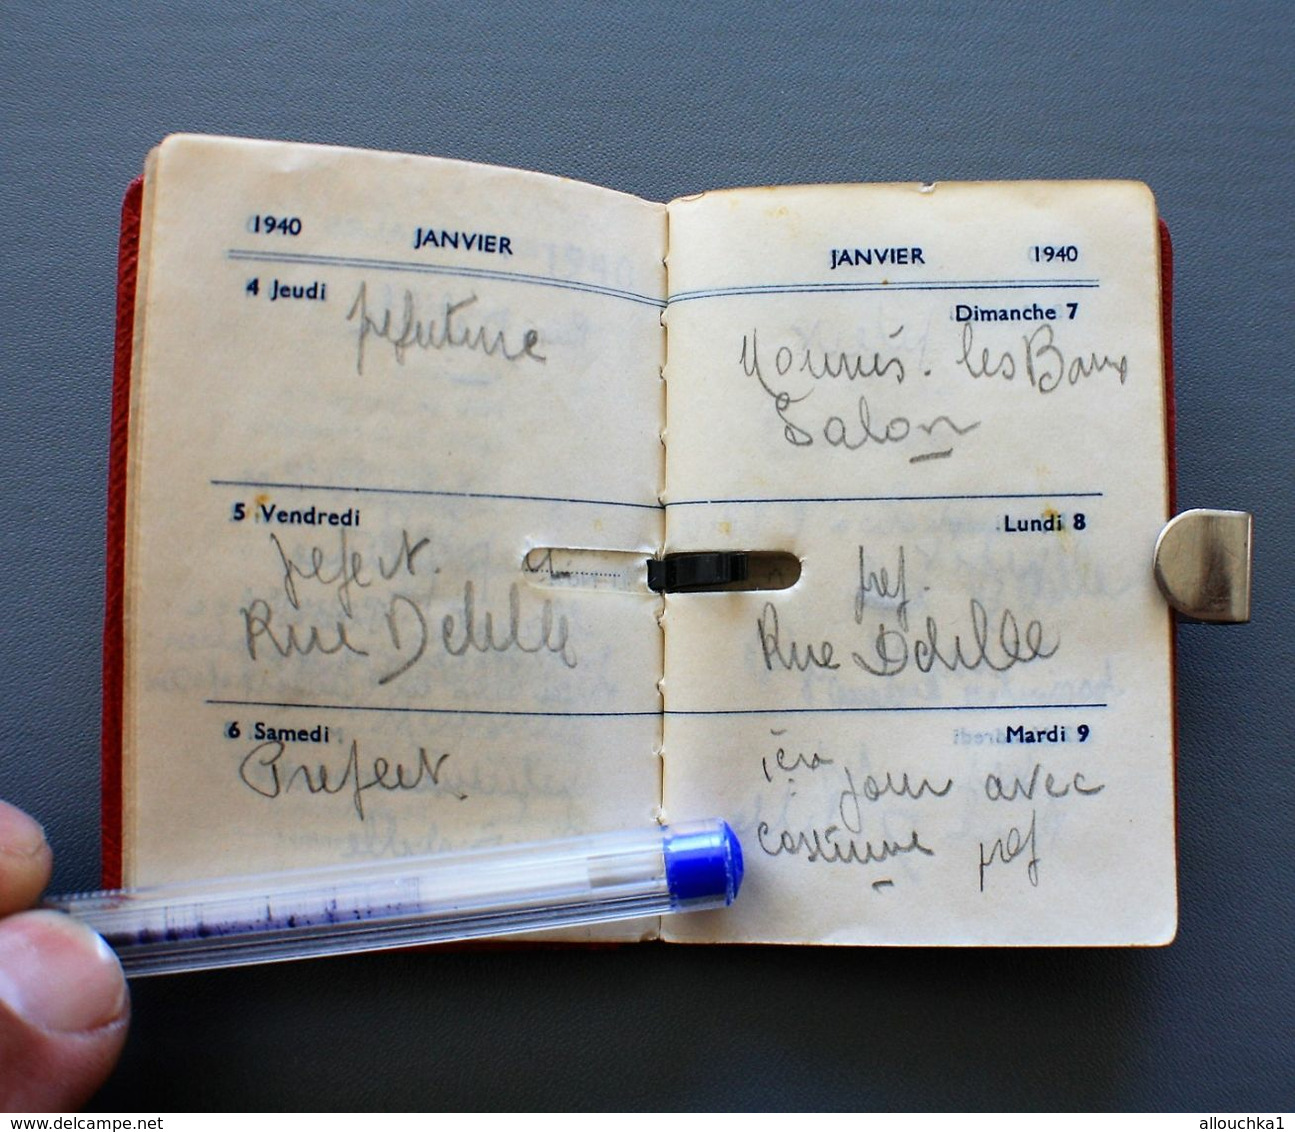 1940 JANVIER
4 Jeudi
prefecture
5 Vendredi
prefect.
Rue Delille
6 Samedi
Prefect.
JANVIER 1940
Dimanche 7
les Baux
Salon
Lundi 8
pref.
Rue Delille
Mardi 9
1era jour avec
costume pref
delcampe.net
allouchka1